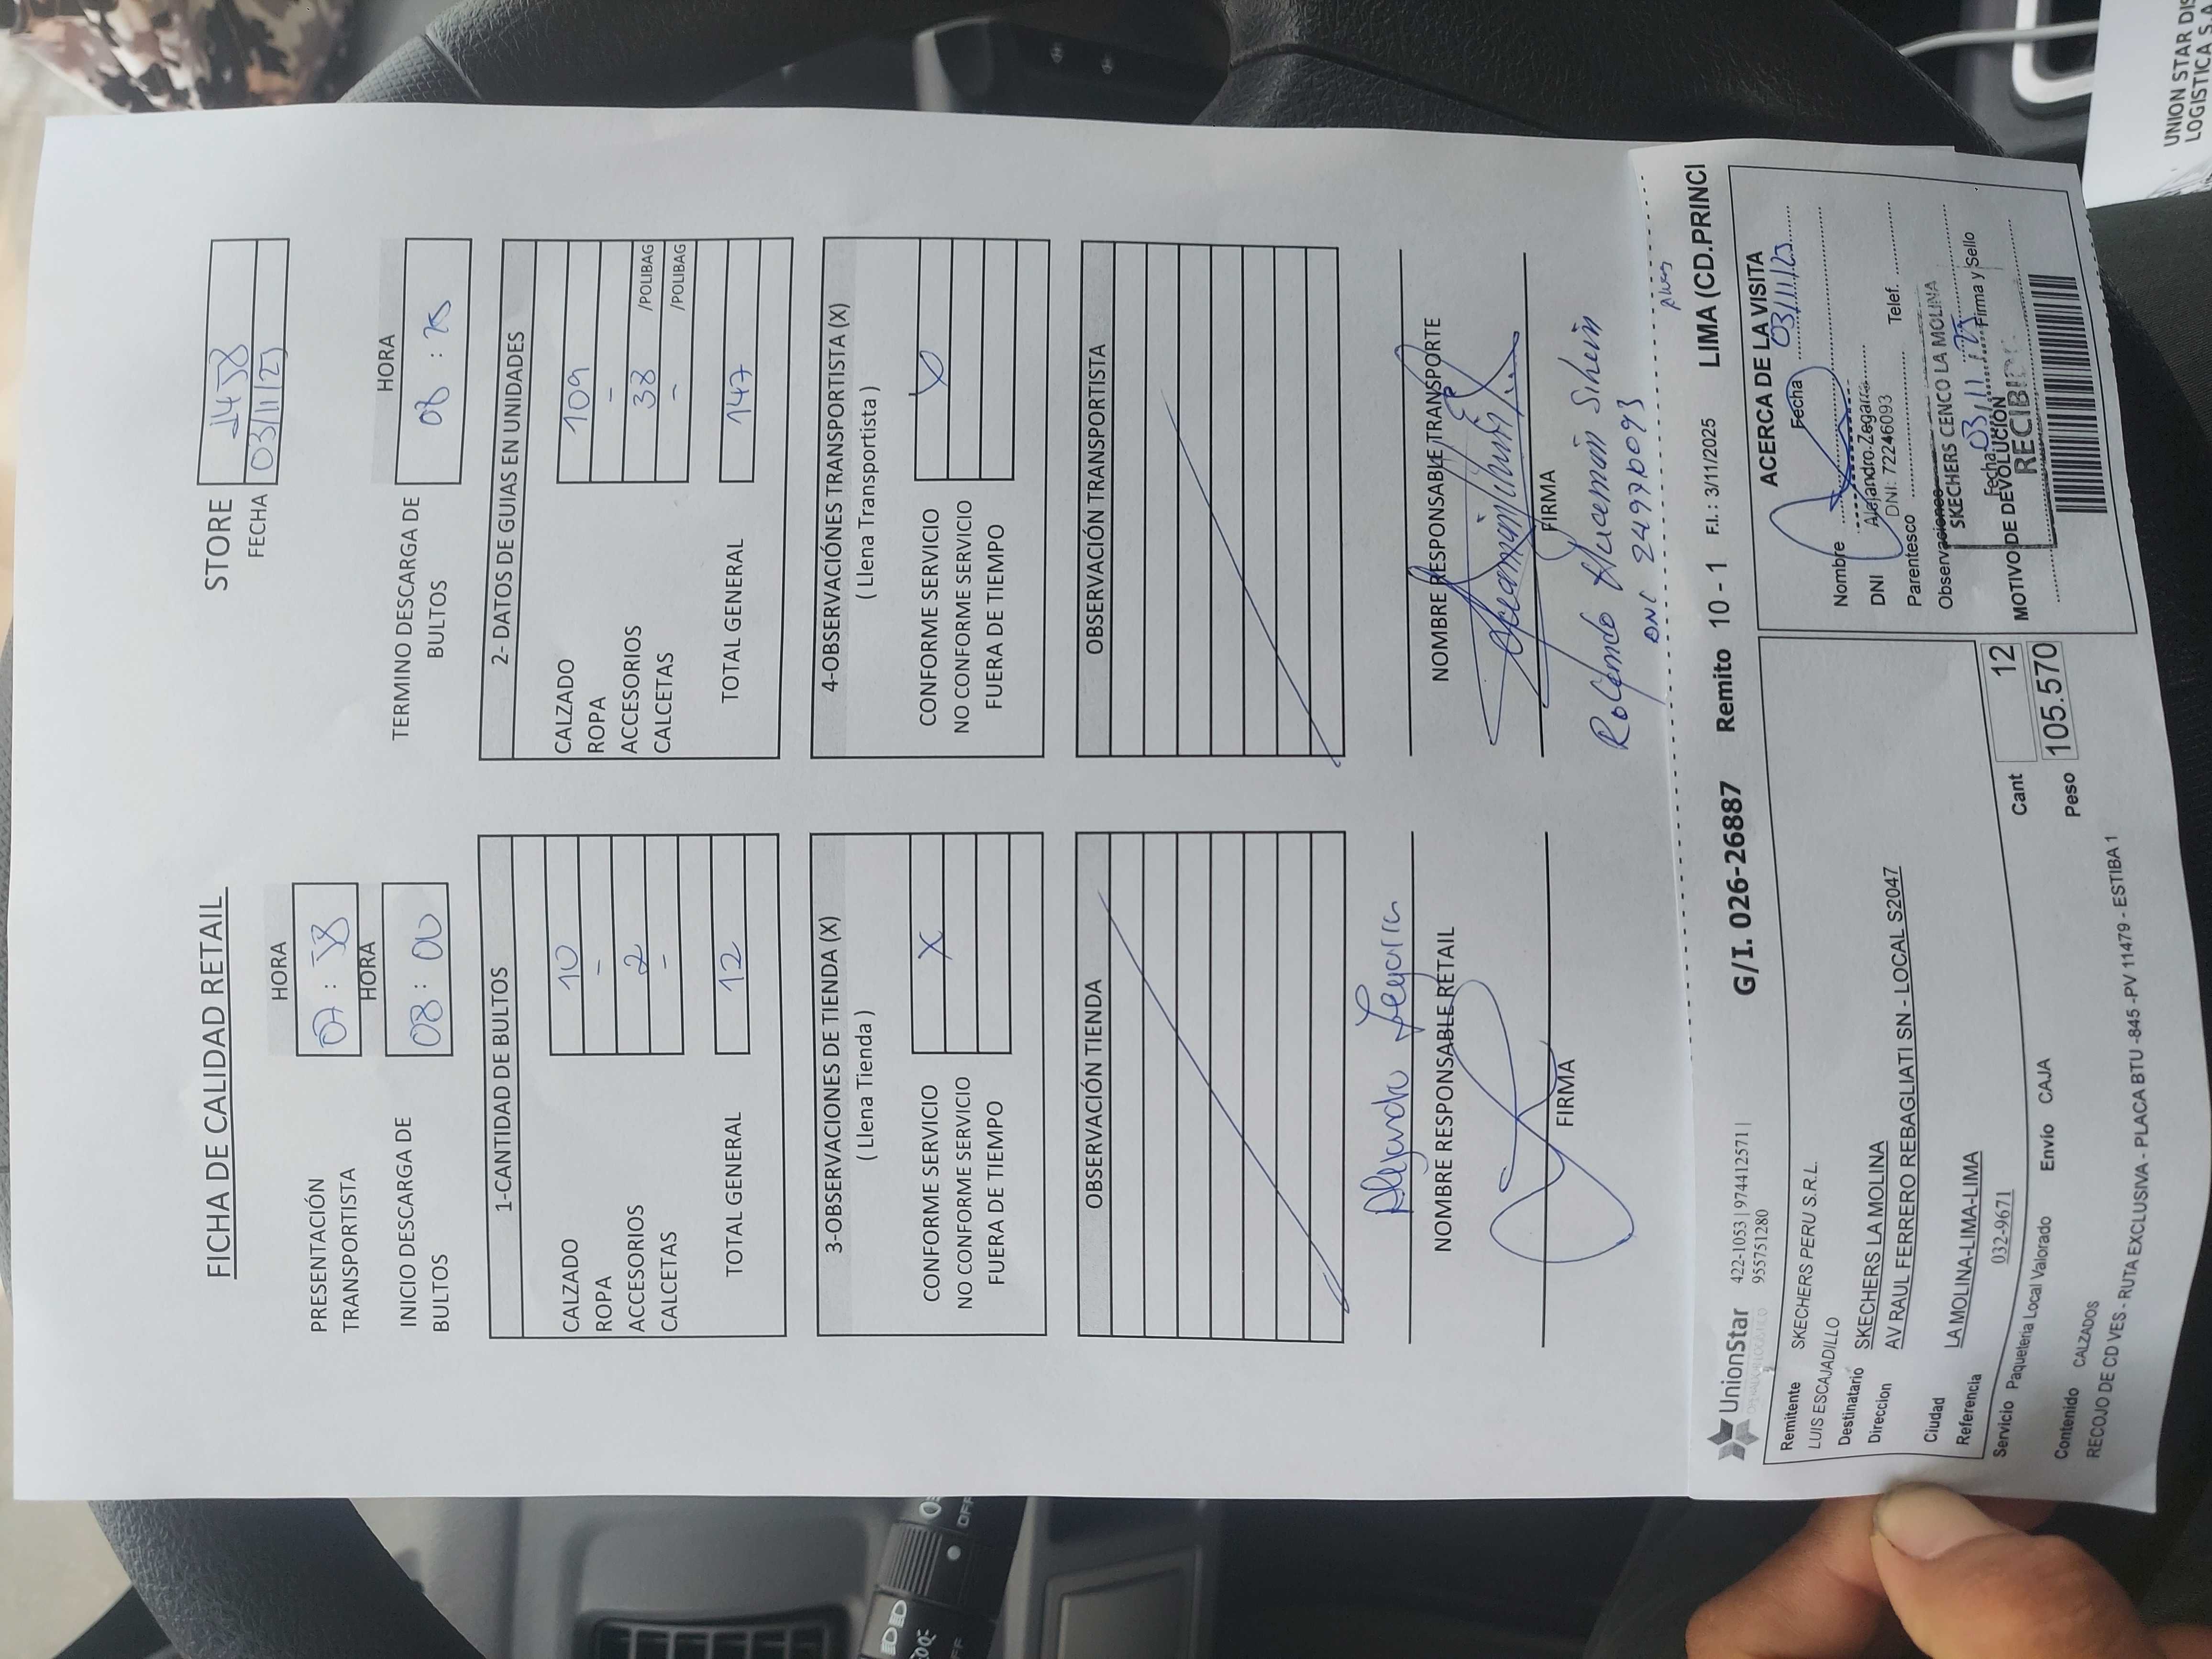 FICHA DE CALIDAD RETAIL
STORE 1458
FECHA 03/11/25
HORA
PRESENTACIÓN TRANSPORTISTA 07 : 58
HORA HORA
INICIO DESCARGA DE BULTOS 08 : 00
TERMINO DESCARGA DE BULTOS 08 : 25
1-CANTIDAD DE BULTOS
CALZADO 10
ROPA -
ACCESORIOS 2
CALCETAS -
TOTAL GENERAL 12
2- DATOS DE GUIAS EN UNIDADES
CALZADO 109
ROPA -
ACCESORIOS 38 /POLIBAG
CALCETAS - /POLIBAG
TOTAL GENERAL 147
3-OBSERVACIONES DE TIENDA (X)
( Llena Tienda )
CONFORME SERVICIO X
NO CONFORME SERVICIO
FUERA DE TIEMPO
4-OBSERVACIÓNES TRANSPORTISTA (X)
( Llena Transportista )
CONFORME SERVICIO X
NO CONFORME SERVICIO
FUERA DE TIEMPO
OBSERVACIÓN TIENDA
OBSERVACIÓN TRANSPORTISTA
Alejandro Zegarra
NOMBRE RESPONSABLE RETAIL
FIRMA
NOMBRE RESPONSABLE TRANSPORTE
FIRMA
Rolando Huaman
UnionStar
422-1053 | 974412571 |
955751280
G/I. 026-26887 Remito 10 - 1 F.I. : 3/11/2025 LIMA (CD.PRINCI
Remitente SKECHERS PERU S.R.L.
LUIS ESCAJADILLO
Destinatario SKECHERS LA MOLINA
Direccion AV RAUL FERRERO REBAGLIATI SN - LOCAL S2047
Ciudad LA MOLINA-LIMA-LIMA
Referencia 032-9671
Servicio Paqueteria Local Valorado Envío CAJA
Contenido CALZADOS
RECOJO DE CD VES - RUTA EXCLUSIVA - PLACA BTU -845 -PV 11479 - ESTIBA 1
Cant 12
Peso 105.570
ACERCA DE LA VISITA
Fecha 03/11/25
Nombre
Alejandro Zegarra
DNI
DNI: 72246093
Telef.
Parentesco
Observaciones
SKECHERS CENCO LA MOLINA
Fecha: 03/11/25
Firma y Sello
MOTIVO DE DEVOLUCIÓN
RECIBIDO
UNION STAR DIS
LOGISTICA S.A
OFF